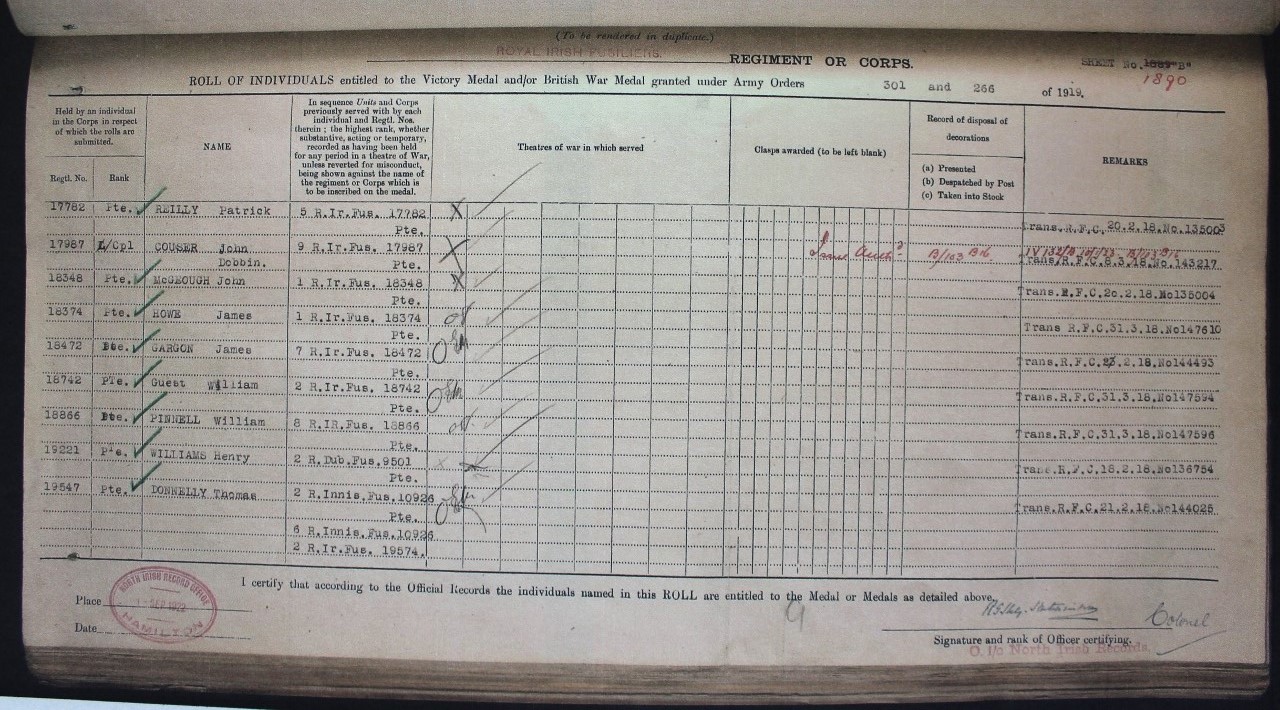 (To be rendered in duplicate.)
ROYAL IRISH FUSILIERS.
REGIMENT OR CORPS.
SHEET No.
1890
ROLL OF INDIVIDUALS entitled to the Victory Medal and/or British War Medal granted under Army Orders 301 and 266 of 1919.
Held by an individual
in the Corps in respect
of which the rolls are
submitted.
Regtl. No.
Rank
NAME
In sequence Units and Corps
previously served with by each
individual and Regtl. Nos.
therein ; the highest rank, whether
substantive, acting or temporary,
recorded as having been held
for any period in a theatre of War,
unless reverted for misconduct,
being shown against the name of
the regiment or Corps which is
to be inscribed on the medal.
Theatres of war in which served
Clasps awarded (to be left blank)
Record of disposal of
decorations
(a) Presented
(b) Despatched by Post
(c) Taken into Stock
REMARKS
17782 Pte. REILLY Patrick 5 R.Ir.Fus. 17782
Pte. Trans.R.F.C.20.2.18.No.135003
17987 L/Cpl COUSER John 9 R.Ir.Fus. 17987
Dobbin. Pte. Trans.R.F.C.8.3.18.No.143217
18348 Pte. McGEOUGH John 1 R.Ir.Fus. 18348
Pte. Trans.R.F.C.20.2.18.No135004
18374 Pte. HOWE James 1 R.Ir.Fus. 18374
Pte. Trans R.F.C.31.3.18.No147610
18472 Pte. GARGON James 7 R.Ir.Fus. 18472
Pte. Trans.R.F.C.23.2.18.No144493
18742 PTe. Guest William 2 R.Ir.Fus. 18742
Pte. Trans.R.F.C.31.3.18.No147594
18866 Pte. PINNELL William 8 R.IR.Fus. 18866
Pte. Trans.R.F.C.31.3.18.No147596
19221 Pte. WILLIAMS Henry 2 R.Dub.Fus.9501
Pte. Trans.R.F.C.18.2.18.No136754
19547 Pte. DONNELLY Thomas 2 R.Innis.Fus.10926
Pte. Trans.R.F.C.21.2.18.No144025
6 R.Innis.Fus.10926
2 R.Ir.Fus. 19574.
I certify that according to the Official Records the individuals named in this ROLL are entitled to the Medal or Medals as detailed above.
NORTH IRISH RECORD OFFICE
SEP 1922
HAMILTON
Place
Date
9
Colonel
Signature and rank of Officer certifying.
O. I/c North Irish Records.